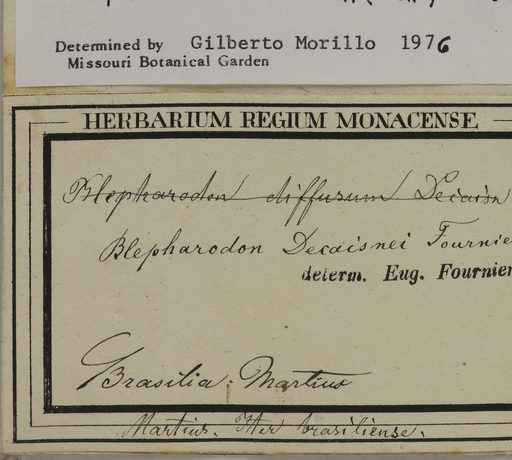 Determined by Gilberto Morillo 1976
Missouri Botanical Garden
HERBARIUM REGIUM MONACENSE
Blepharodon diffusum Decaisn
Blepharodon Decaisnei Fournie
determ. Eug. Fournier
Brasilia. Martius
Martius. Iter brasiliense.